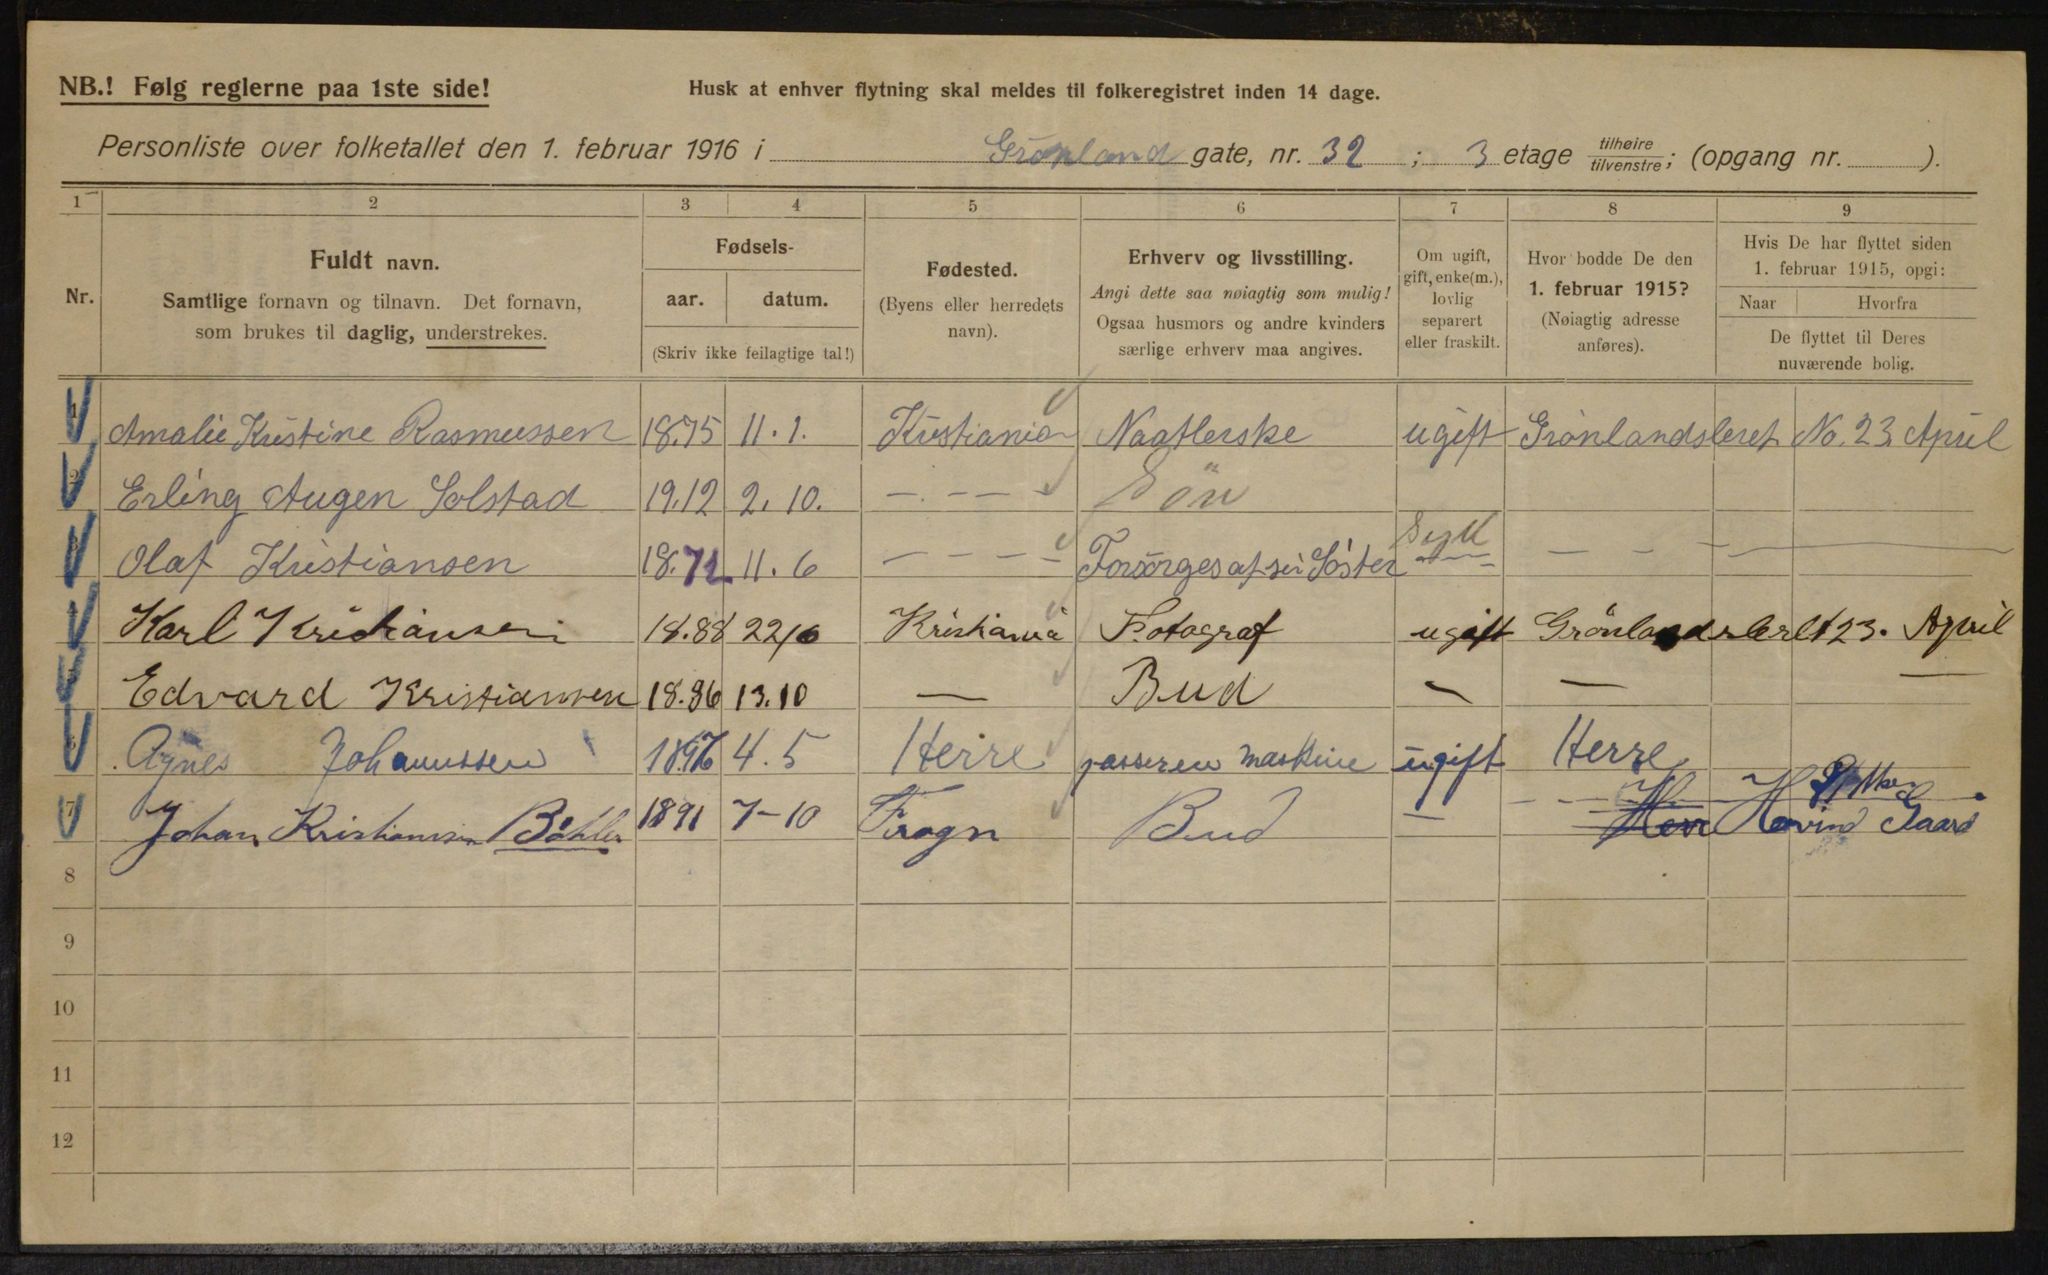 NB.! Følg reglerne paa 1ste side!
Husk at enhver flytning skal meldes til folkeregistret inden 14 dage.
Personliste over folketallet den 1. februar 1916 i Grønland gate, nr. 32 ; 3 etage tilhøire/tilvenstre; (opgang nr. ).
1 2 3 4 5 6 7 8 9
Nr.
Fuldt navn.
Samtlige fornavn og tilnavn. Det fornavn,
som brukes til daglig, understrekes.
Fødsels-
aar. datum.
(Skriv ikke feilagtige tal!)
Fødested.
(Byens eller herredets
navn).
Erhverv og livsstilling.
Angi dette saa nøiagtig som mulig!
Ogsaa husmors og andre kvinders
særlige erhverv maa angives.
Om ugift,
gift, enke(m.),
lovlig
separert
eller fraskilt.
Hvor bodde De den
1. februar 1915?
(Nøiagtig adresse
anføres).
Hvis De har flyttet siden
1. februar 1915, opgi:
Naar Hvorfra
De flyttet til Deres
nuværende bolig.
Amalie Kristine Rasmussen 18.75 11.1. Kristiania Naatlerske ugift Grönlandsleret No. 23 April
Erling Augen Solstad 19.12 2.10. — - — - — Sön
Olaf Kristiansen 18.72 11.6 — — — — Forsörges af sin Söster — — —
4 Karl Kristiansen 18.88 22/6 Kristiania Fotograf ugift Grönlandsleret 23. April
Edvard Kristiansen 18.86 13.10 — Bud — — —
Agnes Johannssen 1897 4.5 Herre passeren maskine ugift Herre
7 Johan Kristiansen Böhler 1891 7-10 Frogn Bud — Hovind Gaard
8
9
10
11
12